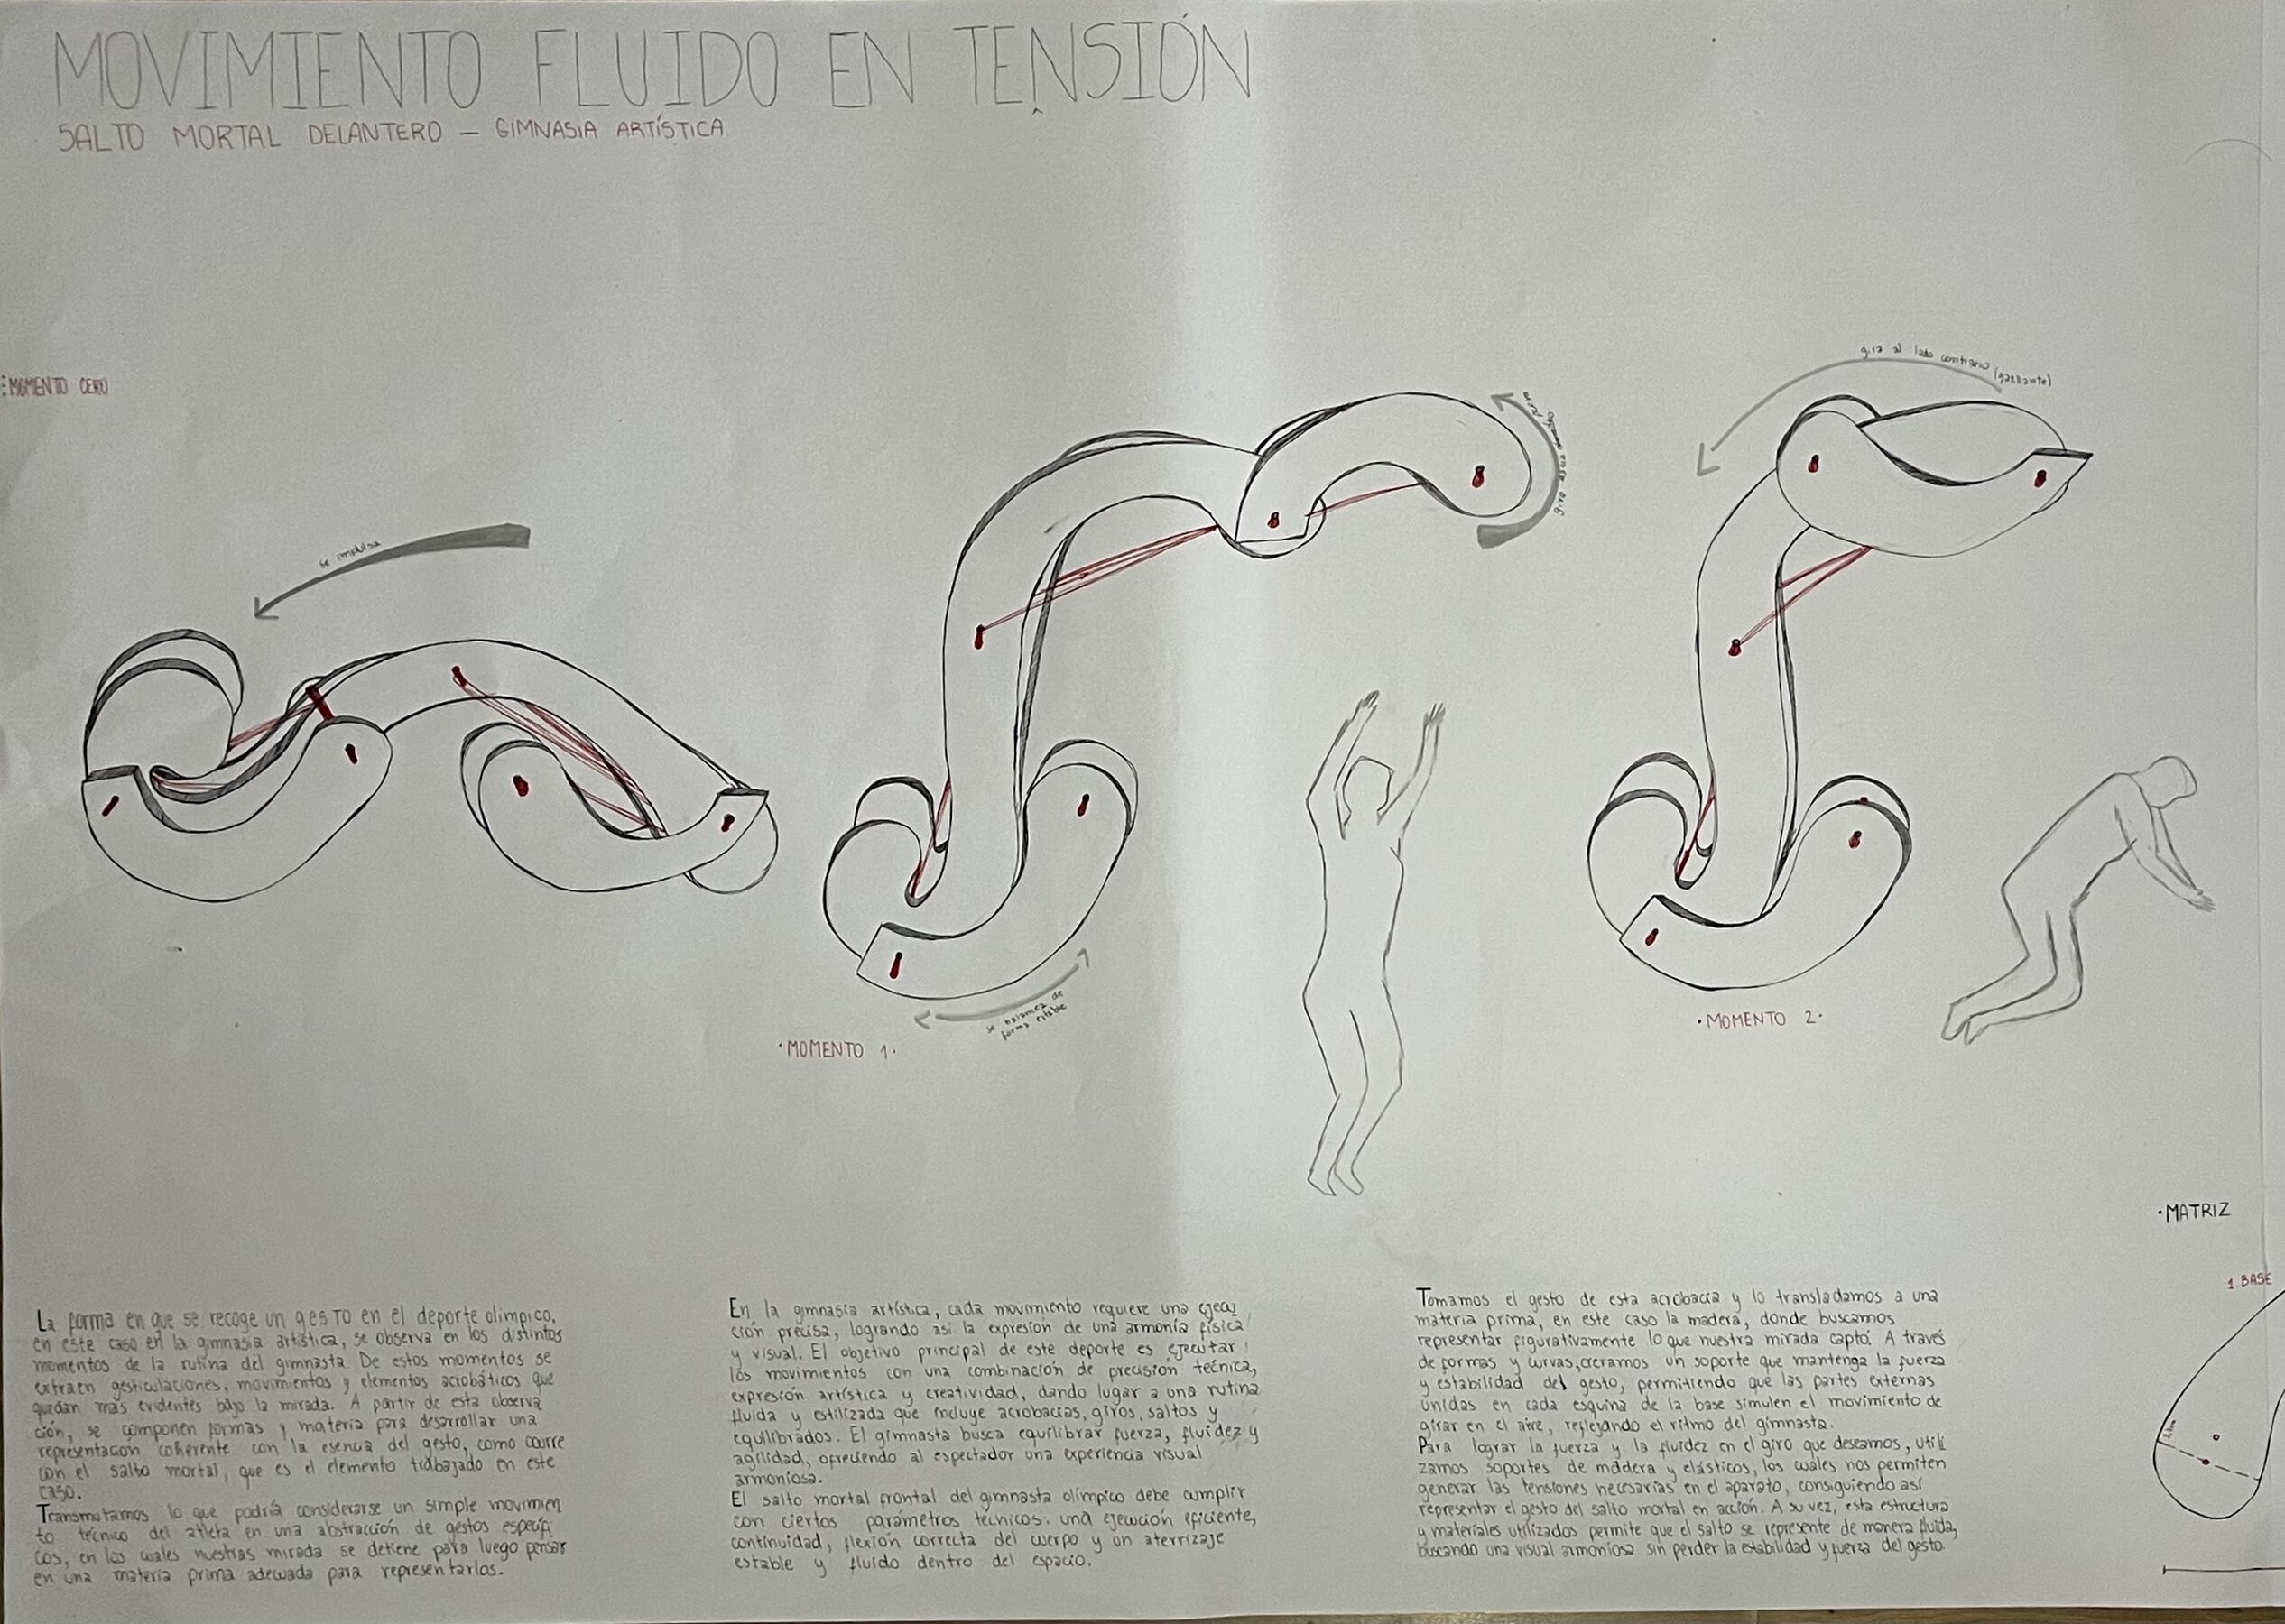 MOVIMIENTO FLUIDO EN TENSIÓN
SALTO MORTAL DELANTERO — GIMNASIA ARTÍSTICA
MOMENTO CERO
se impulsa
gira al lado contrario (gatillante)
se balancea de
forma estable
·MOMENTO 1·
·MOMENTO 2·
·MATRIZ
1. BASE
La forma en que se recoge un gesto en el deporte olimpico,
en este caso en la gimnasia artística, se observa en los distintos
momentos de la rutina del gimnasta. De estos momentos se
extraen gesticulaciones, movimientos y elementos acrobáticos que
quedan más evidentes bajo la mirada. A partir de esta observa
ción, se componen formas y materia para desarrollar una
representación coherente con la esencia del gesto, como ocurre
con el salto mortal, que es el elemento trabajado en este
caso.
Transmutamos lo que podría considerarse un simple movimien
to técnico del atleta en una abstracción de gestos especifi
cos, en los cuales nuestras mirada se detiene para luego pensar
en una materia prima adecuada para representarlos.
En la gimnasia artística, cada movimiento requiere una ejecu
ción precisa, logrando así la expresión de una armonía física
y visual. El objetivo principal de este deporte es ejecutar
los movimientos con una combinación de precisión técnica,
expresión artística y creatividad, dando lugar a una rutina
fluida y estilizada que incluye acrobacias, giros, saltos y
equilibrados. El gimnasta busca equilibrar fuerza, fluidez y
agilidad, ofreciendo al espectador una experiencia visual
armoniosa.
El salto mortal frontal del gimnasta olímpico debe cumplir
con ciertos parámetros técnicos: una ejecución eficiente,
continuidad, flexión correcta del cuerpo y un aterrizaje
estable y fluido dentro del espacio.
Tomamos el gesto de esta acrobacia y lo transladamos a una
materia prima, en este caso la madera, donde buscamos
representar figurativamente lo que nuestra mirada captó. A través
de formas y curvas, creramos un soporte que mantenga la fuerza
y estabilidad del gesto, permitiendo que las partes externas
unidas en cada esquina de la base simulen el movimiento de
girar en el aire, reflejando el ritmo del gimnasta.
Para lograr la fuerza y la fluidez en el giro que deseamos, utili
zamos soportes de madera y elásticos, los cuales nos permiten
generar las tensiones necesarias en el aparato, consiguiendo así
representar el gesto del salto mortal en acción. A su vez, esta estructura
y materiales utilizados permite que el salto se represente de manera fluida,
buscando una visual armoniosa sin perder la estabilidad y fuerza del gesto.